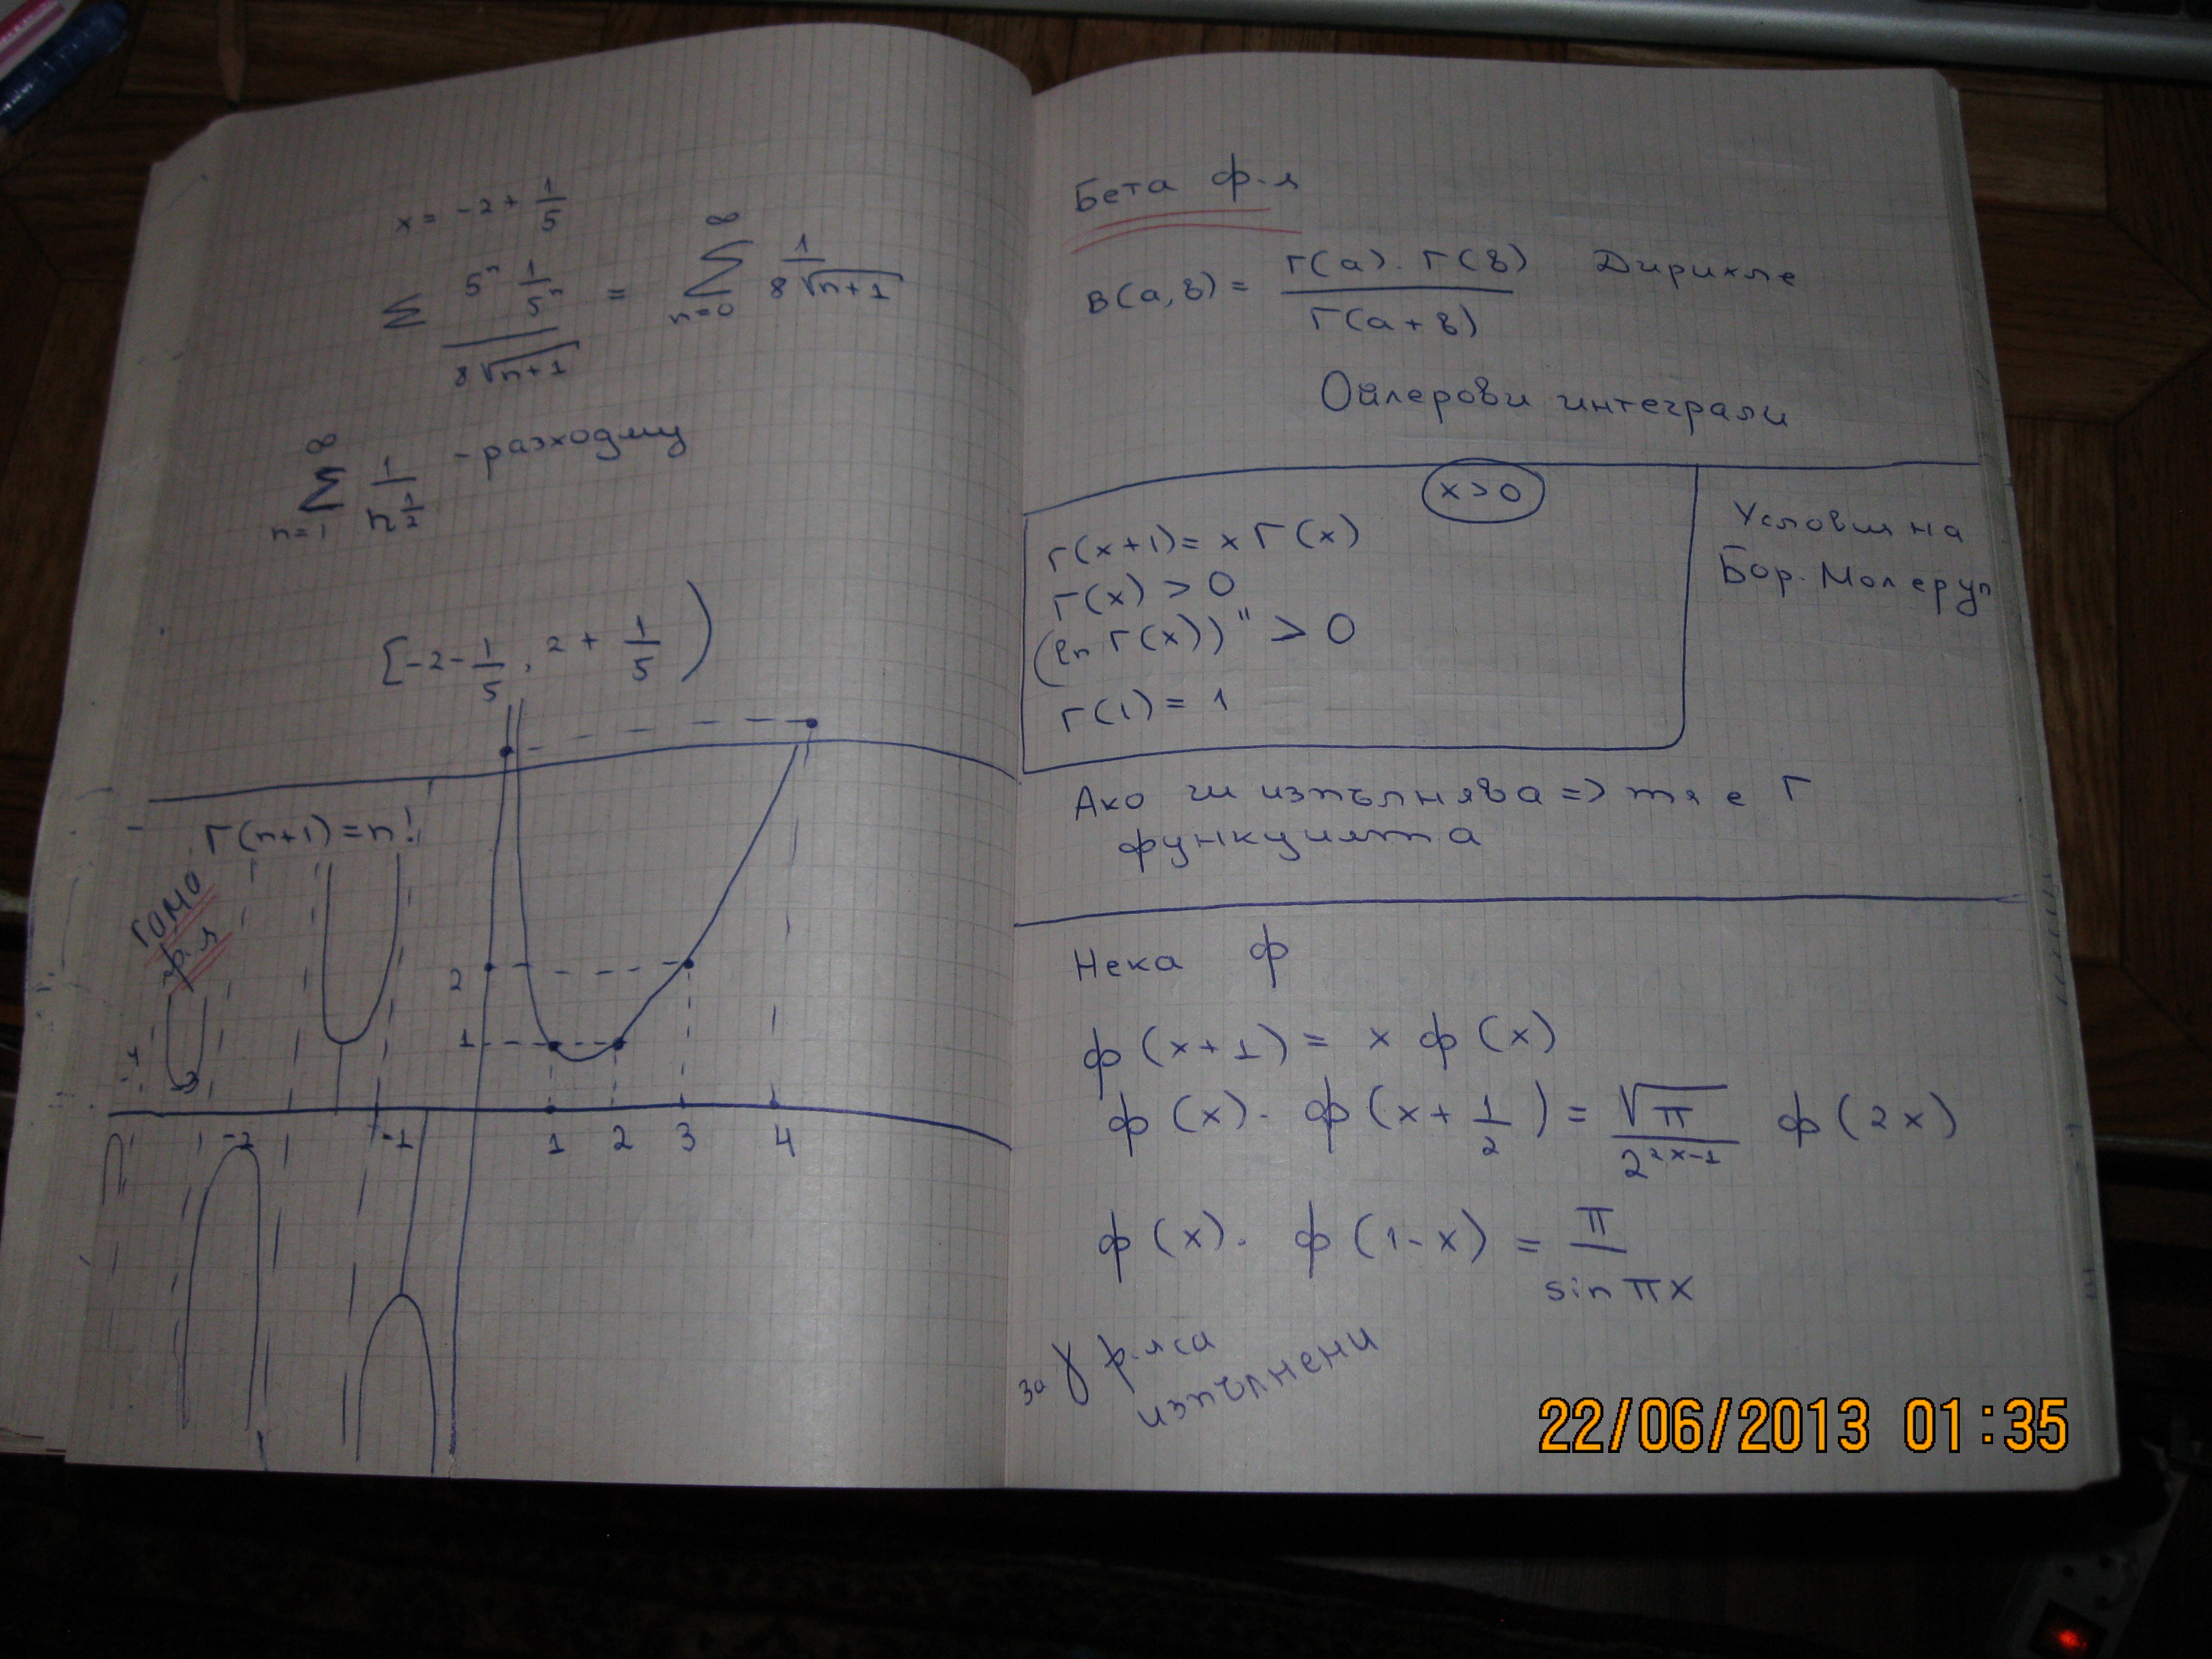 x = -2 + 1/5
Σ (5ⁿ 1/5ⁿ)/(8√(n+1)) = Σ_{n=0}^{∞} 1/(8√(n+1))
Σ_{n=1}^{∞} 1/n^{1/2} - разходящ
[-2-1/5, 2 + 1/5)
Γ(n+1) = n!
Гама
ф-я
2
1
-2 -1 1 2 3 4
Бета ф-я
B(a, b) = Γ(a). Γ(b) / Γ(a + b) Дирихле
Ойлерови интеграли
x > 0
Γ(x+1) = x Γ(x)
Γ(x) > 0
(ln Γ(x))" > 0
Γ(1) = 1
Условия на
Бор. Молеруп
Ако ги изпълнява => тя е Γ
функцията
Нека ф
ф(x+1) = x ф(x)
ф(x). ф(x + 1/2) = √π / 2^{2x-1} ф(2x)
ф(x). ф(1-x) = π / sin πx
за γ ф-я са
изпълнени
22/06/2013 01:35